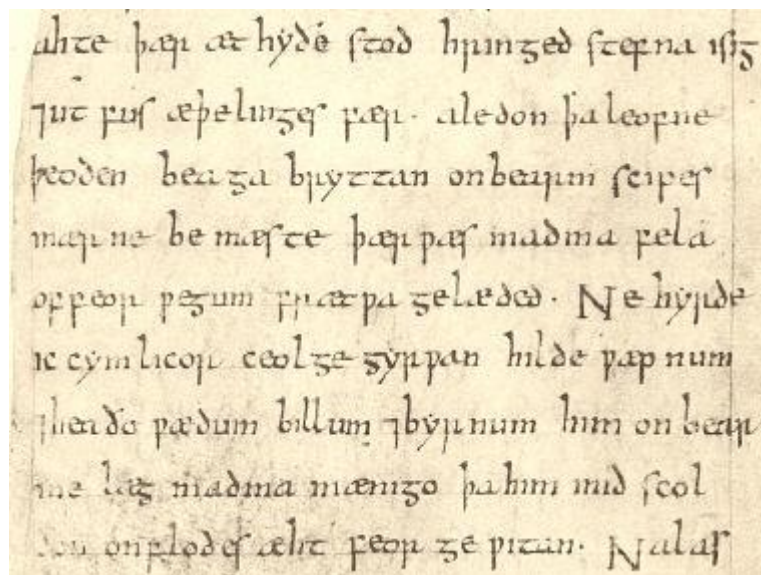 ahte þær æt hyðe stod hringed stefna isig
⁊ut fus æþelinges fær· aledon þa leofne
þeoden beaga bryttan on bearm scipes
mærne be mæste þær ƿæs madma fela
of feor ƿegum frætƿa gelæded· Ne hyrde
ic cymlicor ceol ge gyrƿan hilde ƿæpnum
⁊heaðo ƿædum billum ⁊byrnum him on bear
me læg madma mænigo þa him mid scol
don on flodes æht feor ge ƿitan· Nalas